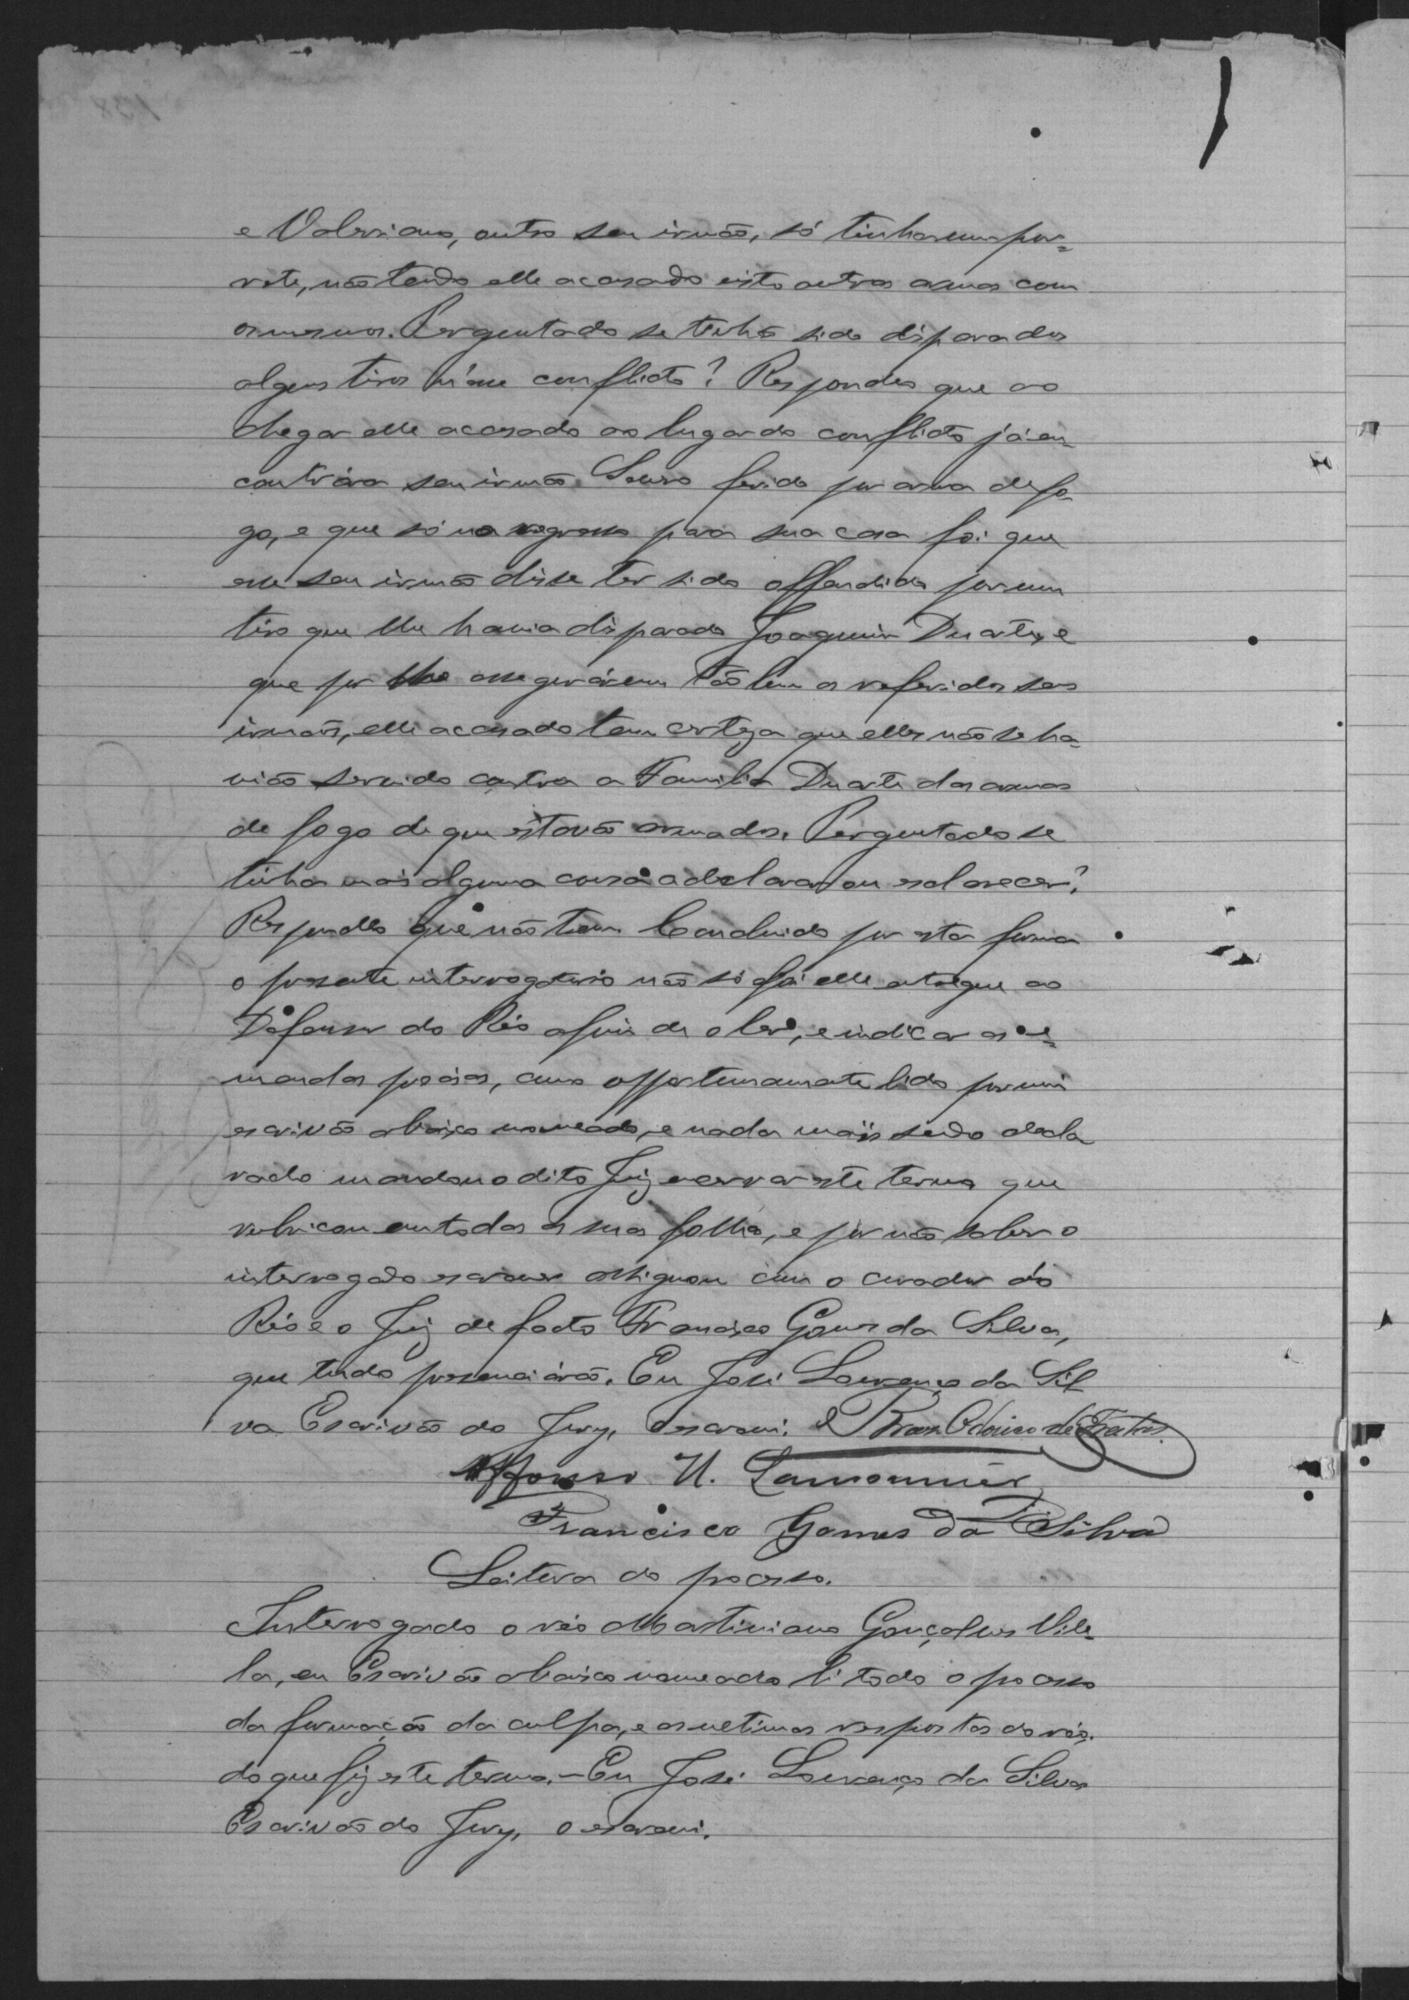 e Valeriano, outro seu irmão, só tinha um por-
rete, não tendo elle accusado visto outras armas com
os mesmos. Perguntado se tinhão sido disparados
alguns tiros n'esse conflicto? Respondeo que ao
chegar elle accusado ao lugar do conflicto já en-
contrára seu irmão Lauro ferido por arma de fo-
go, e que só no regresso para sua casa foi que
esse seu irmão disse ter sido offendido por um
tiro que lhe havia disparado Joaquim Duarte, e
que por lhe assegurárem tão bem os referidos seus
irmãos, elle accusado tem certeza que elles não se ha-
vião servido contra a Familia Duarte das armas
de fogo de que estavão armados. Perguntado se
tinha mais alguma cousa a declarar ou esclarecer?
Respondeo que não tem. Concluido por esta forma
o presente interrogatorio não só foi elle entregue ao
Defensor do Réo afim de o ler, e indicar as e-
mendas precisas, como opportunamente lido por mim
escrivão abaixo nomeado, e nada mais sendo decla
rado mandou o dito Juiz encerrar este termo que
rubricou em todas as suas folhas, e por não saber o
interrogado escrever assignou com o curador do
Réo e o Juiz de facto Francisco Gomes da Silva,
que tudo presenciárão. Eu José Lourenço da Sil
va Escrivão do Jury, o escrevi.
Affonso H. Lamounier
Francisco Gomes da Silva
Leitura do processo.
Interrogado o réo Martiniano Gonçalves Vile-
la, eu Escrivão abaixo nomeado li todo o processo
da formação da culpa, e as ultimas respostas do réo,
do que fiz este termo. – Eu José Lourenço da Silva
Escrivão do Jury, o escrevi.